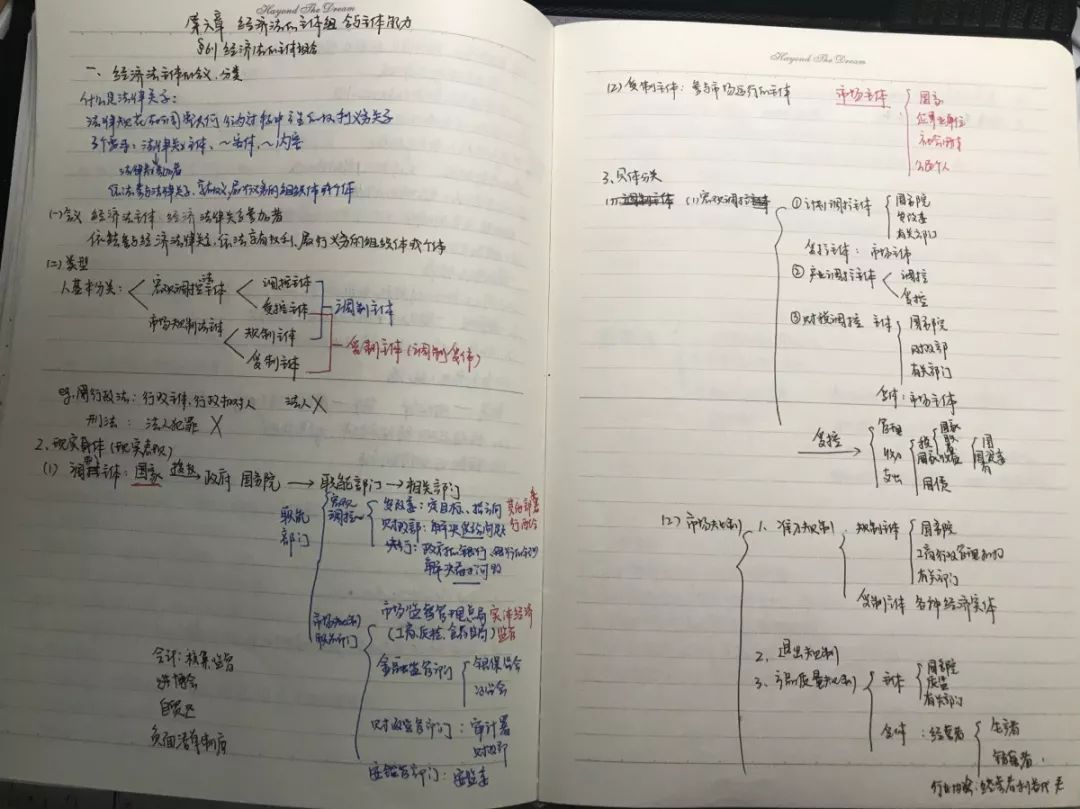 Hayond The Dream
第六章 经济法的主体组合与主体能力
§6.1 经济法的主体组合
一、经济法主体的含义、分类
什么是法律关系:
3个要素:法律关系主体、~客体、~内容
法律关系参加者
依法参与法律关系、享权义、履行义务的组织体或个体
(一)含义 经济法主体:经济法律关系参加者
依法参与经济法律关系,依法享有权利、履行义务的组织体或个体
(二)类型
1.基本分类:
宏观调控法主体
调控主体
受控主体
调制主体
市场规制法主体
规制主体
受制主体
受制主体(调制受体)
eg.用行政法:行政主体、行政相对人 法人X
刑法:法人犯罪 X
2.现实载体(现实表现)
(1) 调制主体:国家 → 政府 国务院 → 职能部门 → 相关部门
职能部门
宏观调控
发改委:定目标、指方向
财政部:
央行:政府的银行、银行的银行
市场规制职能部门
市场监督管理总局 实体经济
(工商、质检、食药监局) 监管
金融监管部门
银保监会
证监会
财政监管部门:
审计署
财政部
会计:核算、监督
进博会
自贸区
负面清单制度
Hayond The Dream
(2)受制主体:参与市场运行的主体
市场主体
国家
企事业单位
社会团体
公民个人
3.具体分类
(1)宏观调控
①计划调控主体
国务院
发改委
有关部门
受控主体:市场主体
②产业调控主体
调控
受控
③财税调控主体
国务院
财政部
有关部门
受体:市场主体
受控
管理
收入
支出
税
国家
国债
(2)市场规制
1.准入规制
规制主体
国务院
工商行政管理机构
有关部门
受制主体 各种经济实体
2.退出规制
3.产品质量规制
主体
国务院
质监
有关部门
受体:经营者
生产者
销售者